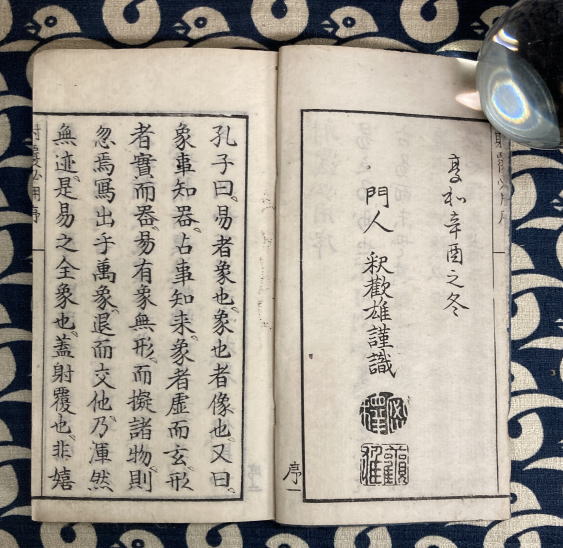 享和辛酉之冬
門人 釈歡雄謹識
序一
孔子曰易者象也象也者像也又曰
象事知器占事知来象者虚而玄形
者實而器易有象無形而擬諸物則
忽焉寫出乎萬象退而交他乃渾然
無迹是易之全象也蓋射覆也非嬉